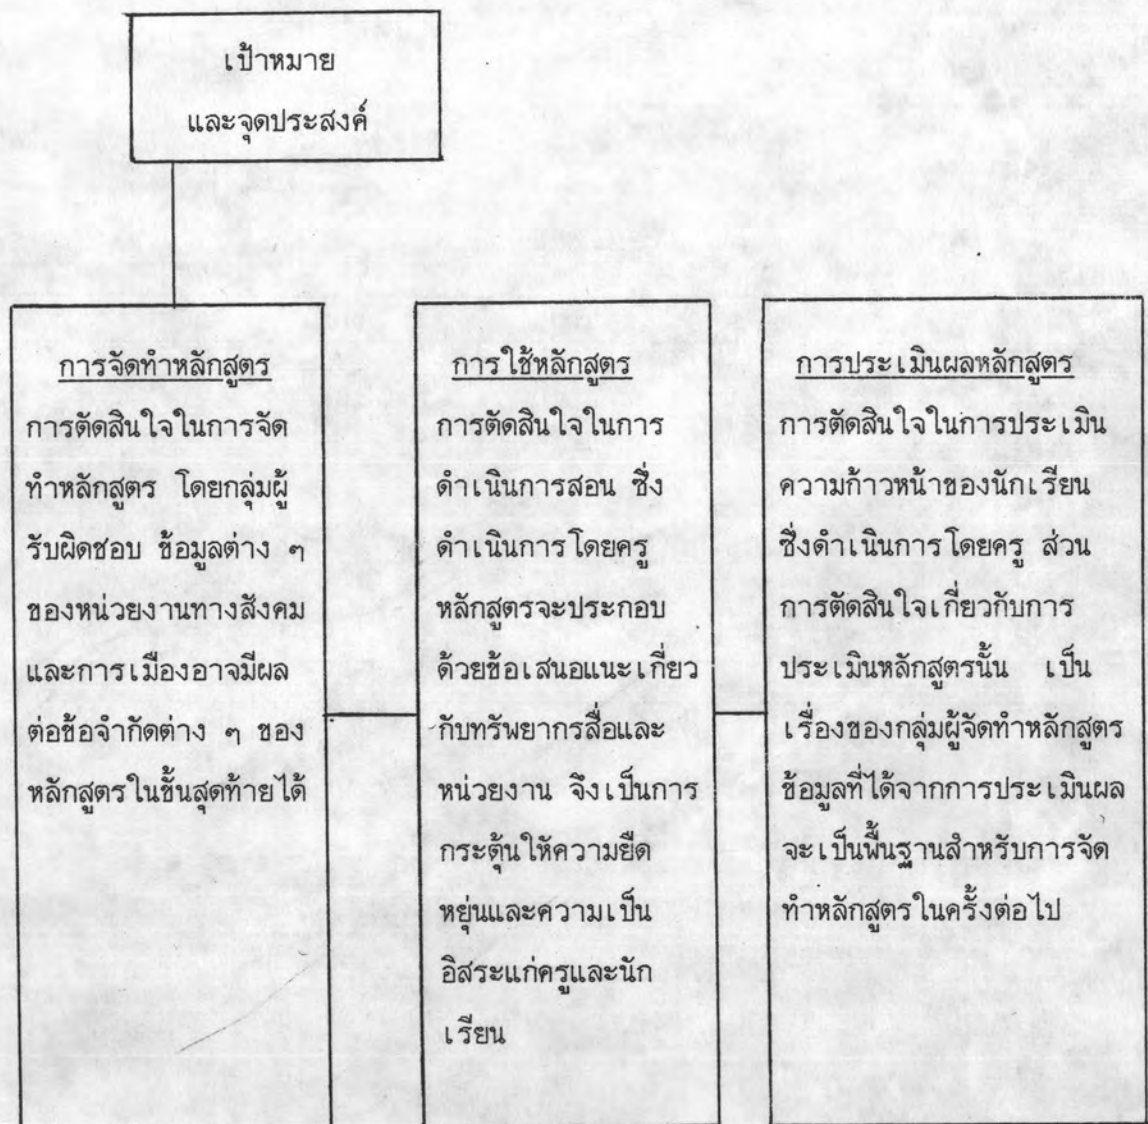 เป้าหมาย
และจุดประสงค์
การจัดทำหลักสูตร
การตัดสินใจในการจัด
ทำหลักสูตร โดยกลุ่มผู้
รับผิดชอบ ข้อมูลต่าง ๆ
ของหน่วยงานทางสังคม
และการเมืองอาจมีผล
ต่อข้อจำกัดต่าง ๆ ของ
หลักสูตรในขั้นสุดท้ายได้
การใช้หลักสูตร
การตัดสินใจในการ
ดำเนินการสอน ซึ่ง
ดำเนินการโดยครู
หลักสูตรจะประกอบ
ด้วยข้อเสนอแนะเกี่ยว
กับทรัพยากรสื่อและ
หน่วยงาน จึงเป็นการ
กระตุ้นให้ความยืด
หยุ่นและความเป็น
อิสระแก่ครูและนัก
เรียน
การประเมินผลหลักสูตร
การตัดสินใจในการประเมิน
ความก้าวหน้าของนักเรียน
ซึ่งดำเนินการโดยครู ส่วน
การตัดสินใจเกี่ยวกับการ
ประเมินหลักสูตรนั้น เป็น
เรื่องของกลุ่มผู้จัดทำหลักสูตร
ข้อมูลที่ได้จากการประเมินผล
จะเป็นพื้นฐานสำหรับการจัด
ทำหลักสูตรในครั้งต่อไป